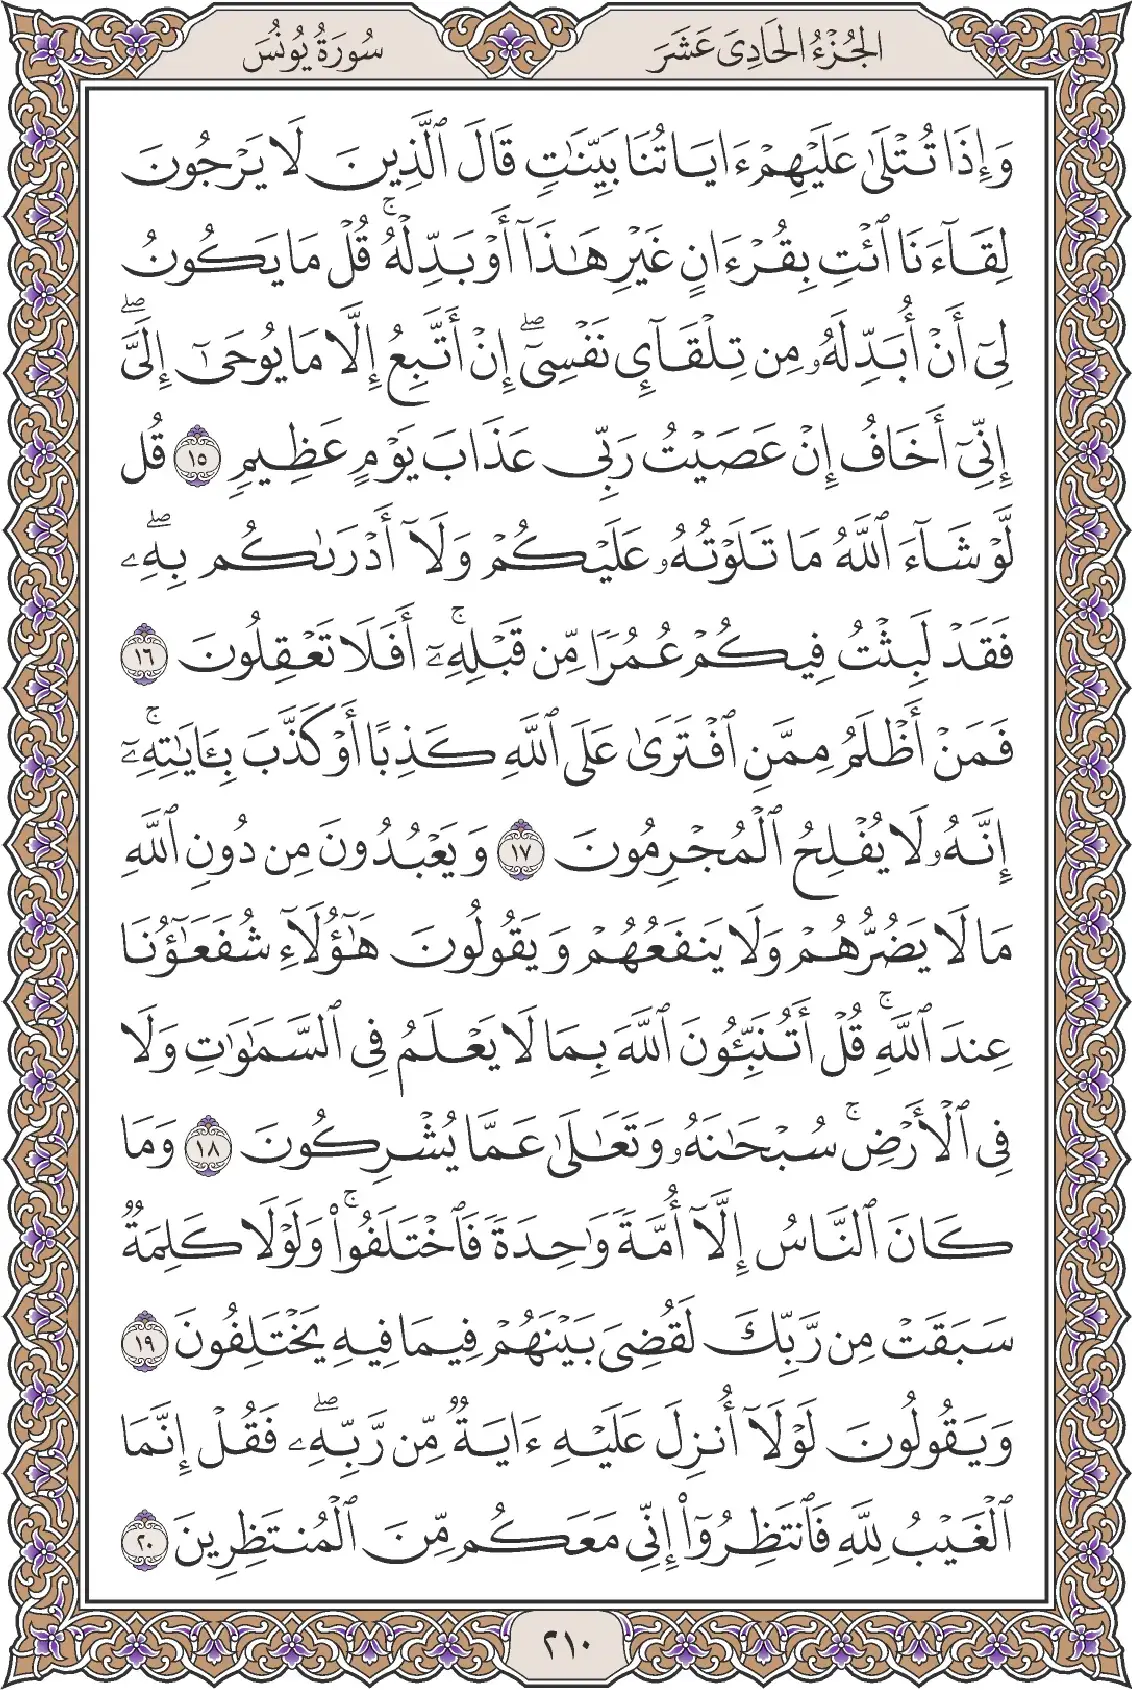 الجُزْءُ الحَادِىَ عَشَرَ
سُورَةُ يُونُسَ
وَإِذَا تُتْلَىٰ عَلَيْهِمْ ءَايَاتُنَا بَيِّنَٰتٍ قَالَ ٱلَّذِينَ لَا يَرْجُونَ
لِقَآءَنَا ٱئْتِ بِقُرْءَانٍ غَيْرِ هَٰذَآ أَوْ بَدِّلْهُ ۚ قُلْ مَا يَكُونُ
لِىٓ أَنْ أُبَدِّلَهُۥ مِن تِلْقَآئِ نَفْسِىٓ ۖ إِنْ أَتَّبِعُ إِلَّا مَا يُوحَىٰٓ إِلَىَّ ۖ
إِنِّىٓ أَخَافُ إِنْ عَصَيْتُ رَبِّى عَذَابَ يَوْمٍ عَظِيمٍ ١٥ قُل
لَّوْ شَآءَ ٱللَّهُ مَا تَلَوْتُهُۥ عَلَيْكُمْ وَلَآ أَدْرَىٰكُم بِهِۦ ۖ
فَقَدْ لَبِثْتُ فِيكُمْ عُمُرًا مِّن قَبْلِهِۦٓ ۚ أَفَلَا تَعْقِلُونَ ١٦
فَمَنْ أَظْلَمُ مِمَّنِ ٱفْتَرَىٰ عَلَى ٱللَّهِ كَذِبًا أَوْ كَذَّبَ بِـَٔايَٰتِهِۦٓ ۚ
إِنَّهُۥ لَا يُفْلِحُ ٱلْمُجْرِمُونَ ١٧ وَيَعْبُدُونَ مِن دُونِ ٱللَّهِ
مَا لَا يَضُرُّهُمْ وَلَا يَنفَعُهُمْ وَيَقُولُونَ هَٰٓؤُلَآءِ شُفَعَٰٓؤُنَا
عِندَ ٱللَّهِ ۚ قُلْ أَتُنَبِّـُٔونَ ٱللَّهَ بِمَا لَا يَعْلَمُ فِى ٱلسَّمَٰوَٰتِ وَلَا
فِى ٱلْأَرْضِ ۚ سُبْحَٰنَهُۥ وَتَعَٰلَىٰ عَمَّا يُشْرِكُونَ ١٨ وَمَا
كَانَ ٱلنَّاسُ إِلَّآ أُمَّةً وَٰحِدَةً فَٱخْتَلَفُوا۟ ۚ وَلَوْلَا كَلِمَةٌ
سَبَقَتْ مِن رَّبِّكَ لَقُضِىَ بَيْنَهُمْ فِيمَا فِيهِ يَخْتَلِفُونَ ١٩
وَيَقُولُونَ لَوْلَآ أُنزِلَ عَلَيْهِ ءَايَةٌ مِّن رَّبِّهِۦ ۖ فَقُلْ إِنَّمَا
ٱلْغَيْبُ لِلَّهِ فَٱنتَظِرُوٓا۟ إِنِّى مَعَكُم مِّنَ ٱلْمُنتَظِرِينَ ٢٠
٢١٠